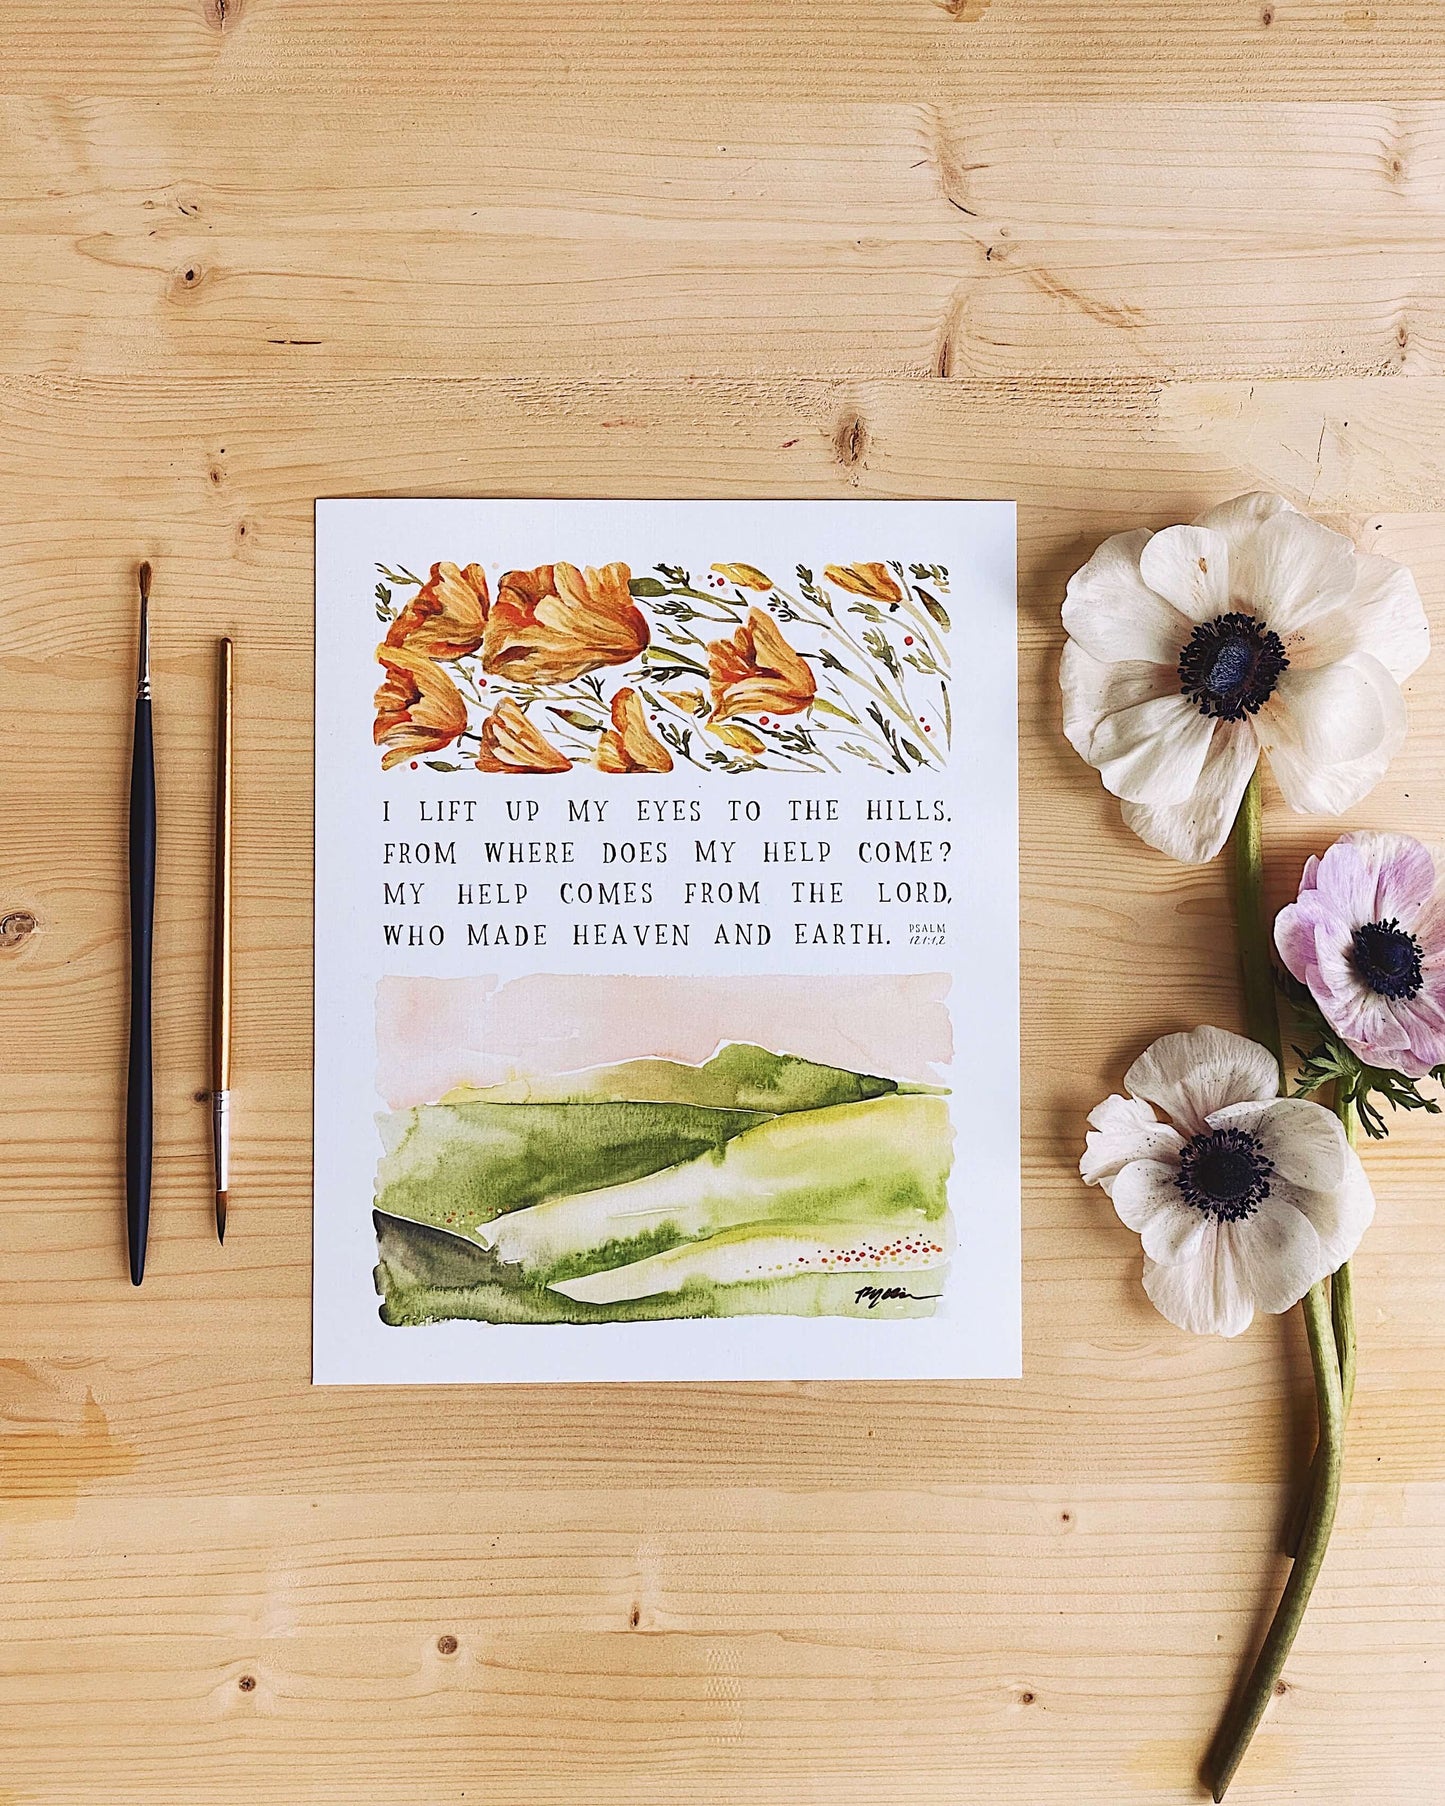 I LIFT UP MY EYES TO THE HILLS.
FROM WHERE DOES MY HELP COME?
MY HELP COMES FROM THE LORD,
WHO MADE HEAVEN AND EARTH. PSALM
121:1,2